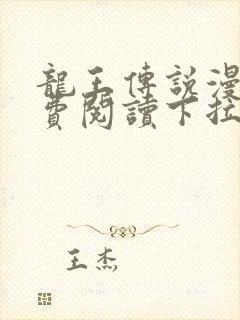 龍王傳說漫
費閱讀下拉
王杰